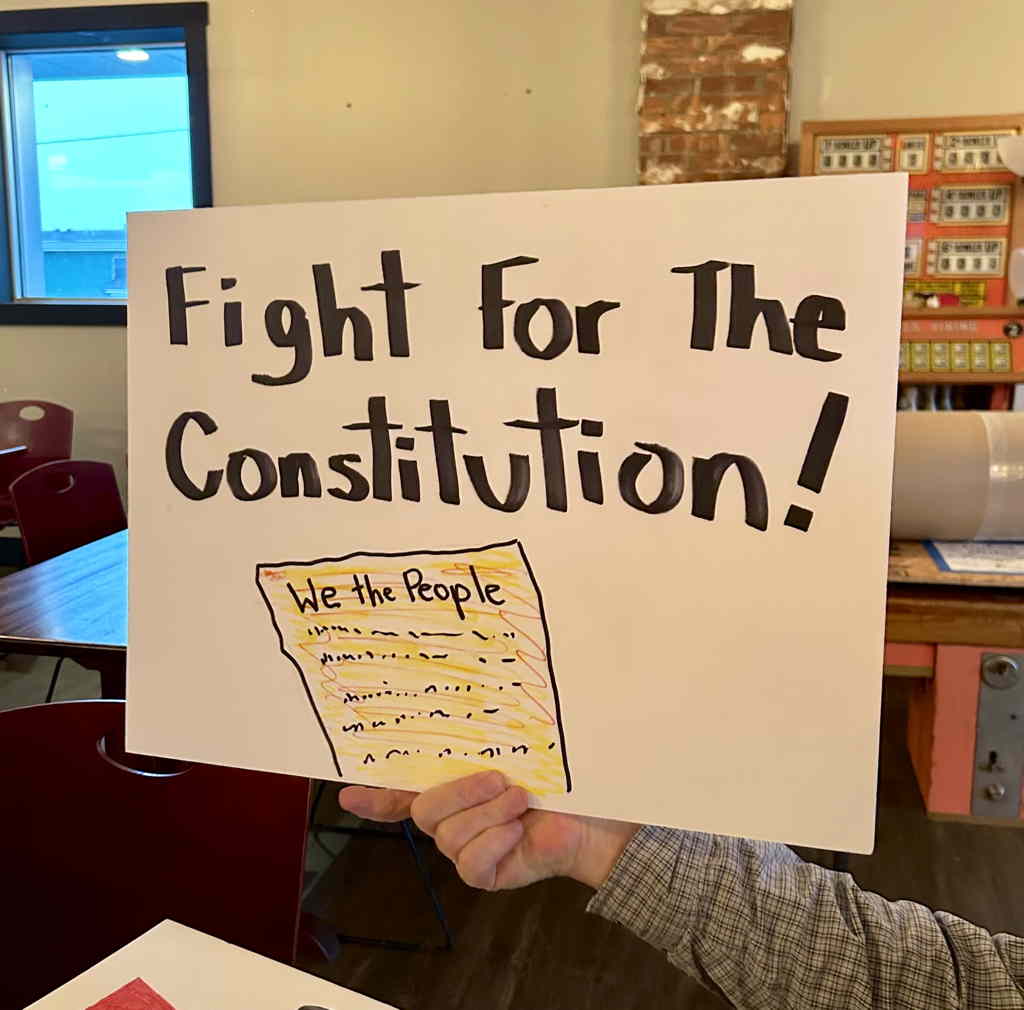 Fight For The
Constitution!
We the People